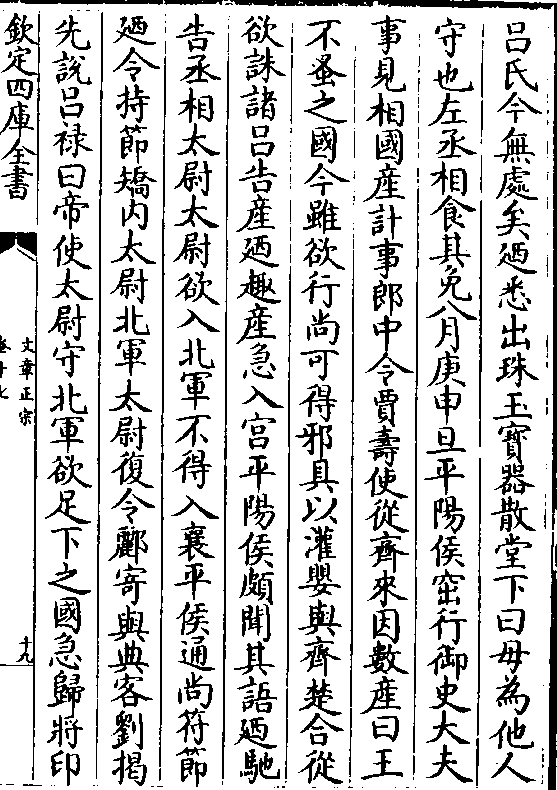 吕氏今無處矣廼悉出珠玉寶器散堂下曰毋為他人
守也左丞相食其免八月庚申旦平陽侯窋行御史大夫
事見相國産計事郎中令賈壽使從齊來因數産曰王
不蚤之國今雖欲行尚可得邪具以灌嬰與齊楚合從
欲誅諸吕告産廼趣産急入宫平陽侯頗聞其語廼馳
告丞相太尉太尉欲入北軍不得入襄平侯通尚符節
廼令持節矯内太尉北軍太尉復令酈寄與典客劉揭
先說吕禄曰帝使太尉守北軍欲足下之國急歸將印
欽定四庫全書
文章正宗
卷十七
十九